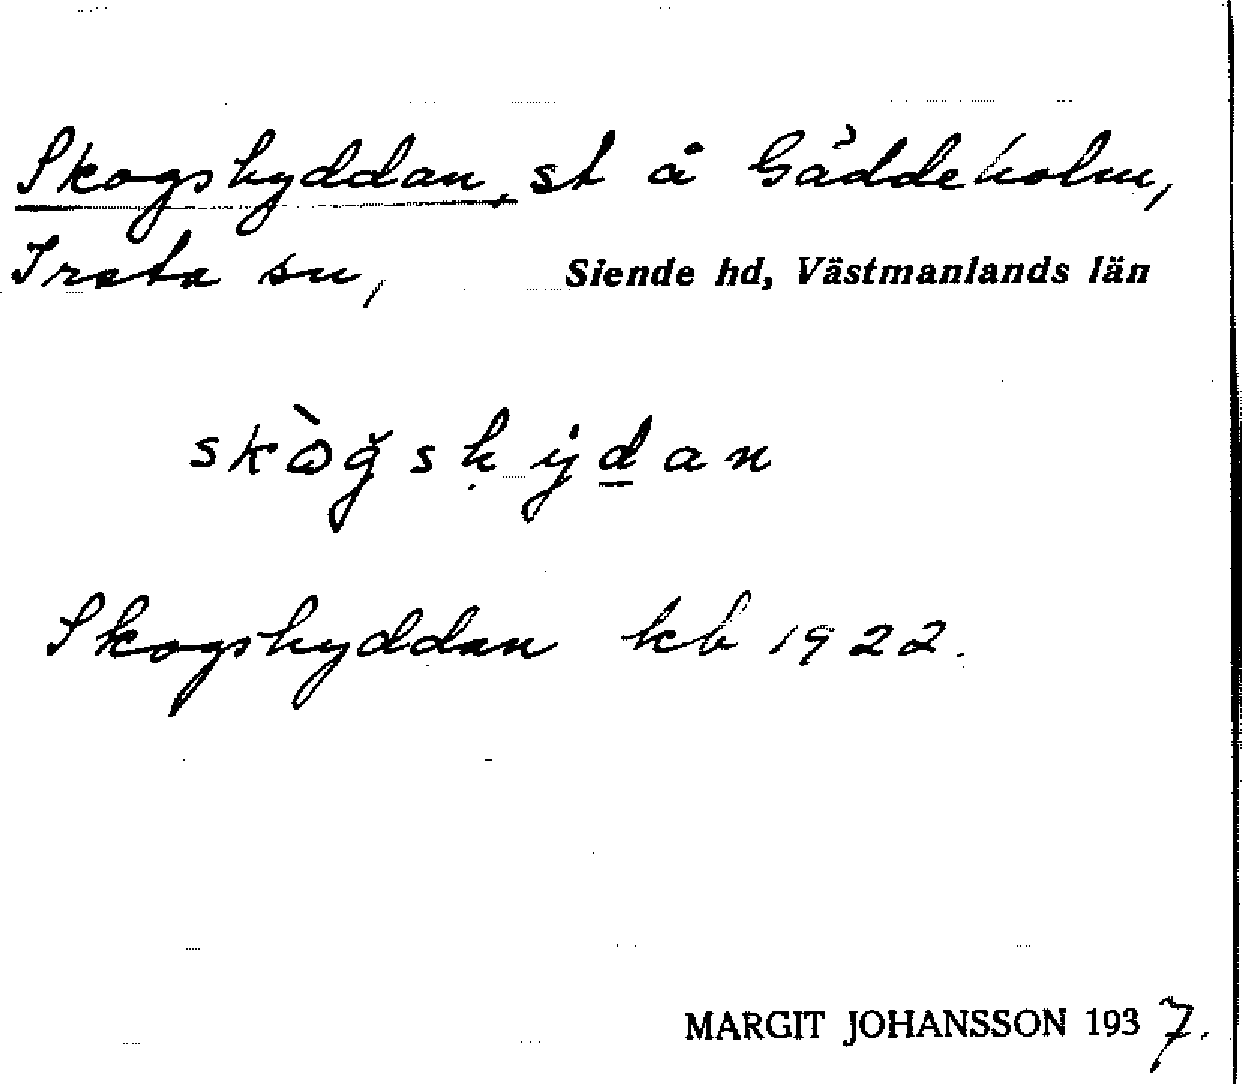 Skogshyddan, st å Gäddeholm,
Irsta sn, Siende hd, Västmanlands län
skògshẏdan
Skogshyddan kb 1922.
MARGIT JOHANSSON 1937.